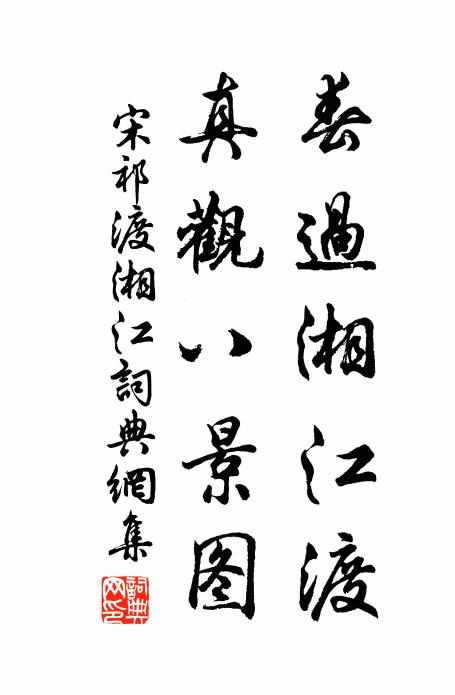 春過湘江渡
真觀八景图
宋祁渡湘江詞典網集
詞典网印